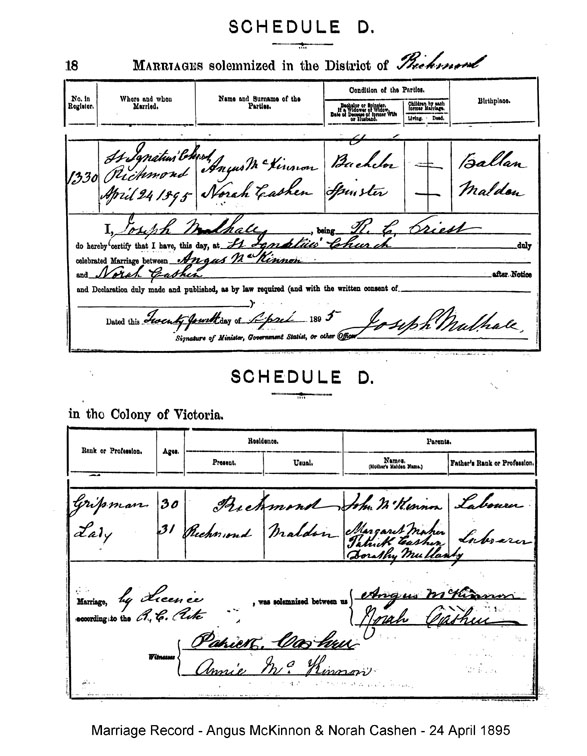 SCHEDULE D.
18 MARRIAGES solemnized in the District of Richmond
No. in Register. Where and when Married. Name and Surname of the Parties. Condition of the Parties. Birthplace.
Bachelor or Spinster. If a Widower or Widow, Date of Decease of former Wife or Husband. Children by each former Marriage. Living. Dead.
St Ignatius Church
1330 Richmond Angus McKinnon Bachelor — Ballan
April 24 1895 Norah Cashen Spinster — Maldon
I, Joseph Mulhall, being R. C. Priest
do hereby certify that I have, this day, at St Ignatius' Church duly
celebrated Marriage between Angus McKinnon
and Norah Cashen after Notice
and Declaration duly made and published, as by law required (and with the written consent of
).
Dated this Twenty fourth day of April 1895 Joseph Mulhall
Signature of Minister, Government Statist, or other Officer
SCHEDULE D.
in the Colony of Victoria.
Rank or Profession. Ages. Residence. Parents.
Present. Usual. Names. (Mother's Maiden Name.) Father's Rank or Profession.
Gripman 30 Richmond John McKinnon Labourer
Lady 31 Richmond Maldon Margaret Maher Labourer
Patrick Cashen
Dorothy Mullanty
Marriage, by Licence, was solemnised between us Angus McKinnon
according to the R. C. Rite Norah Cashen
Witnesses Patrick Cashen
Annie McKinnon
Marriage Record - Angus McKinnon & Norah Cashen - 24 April 1895